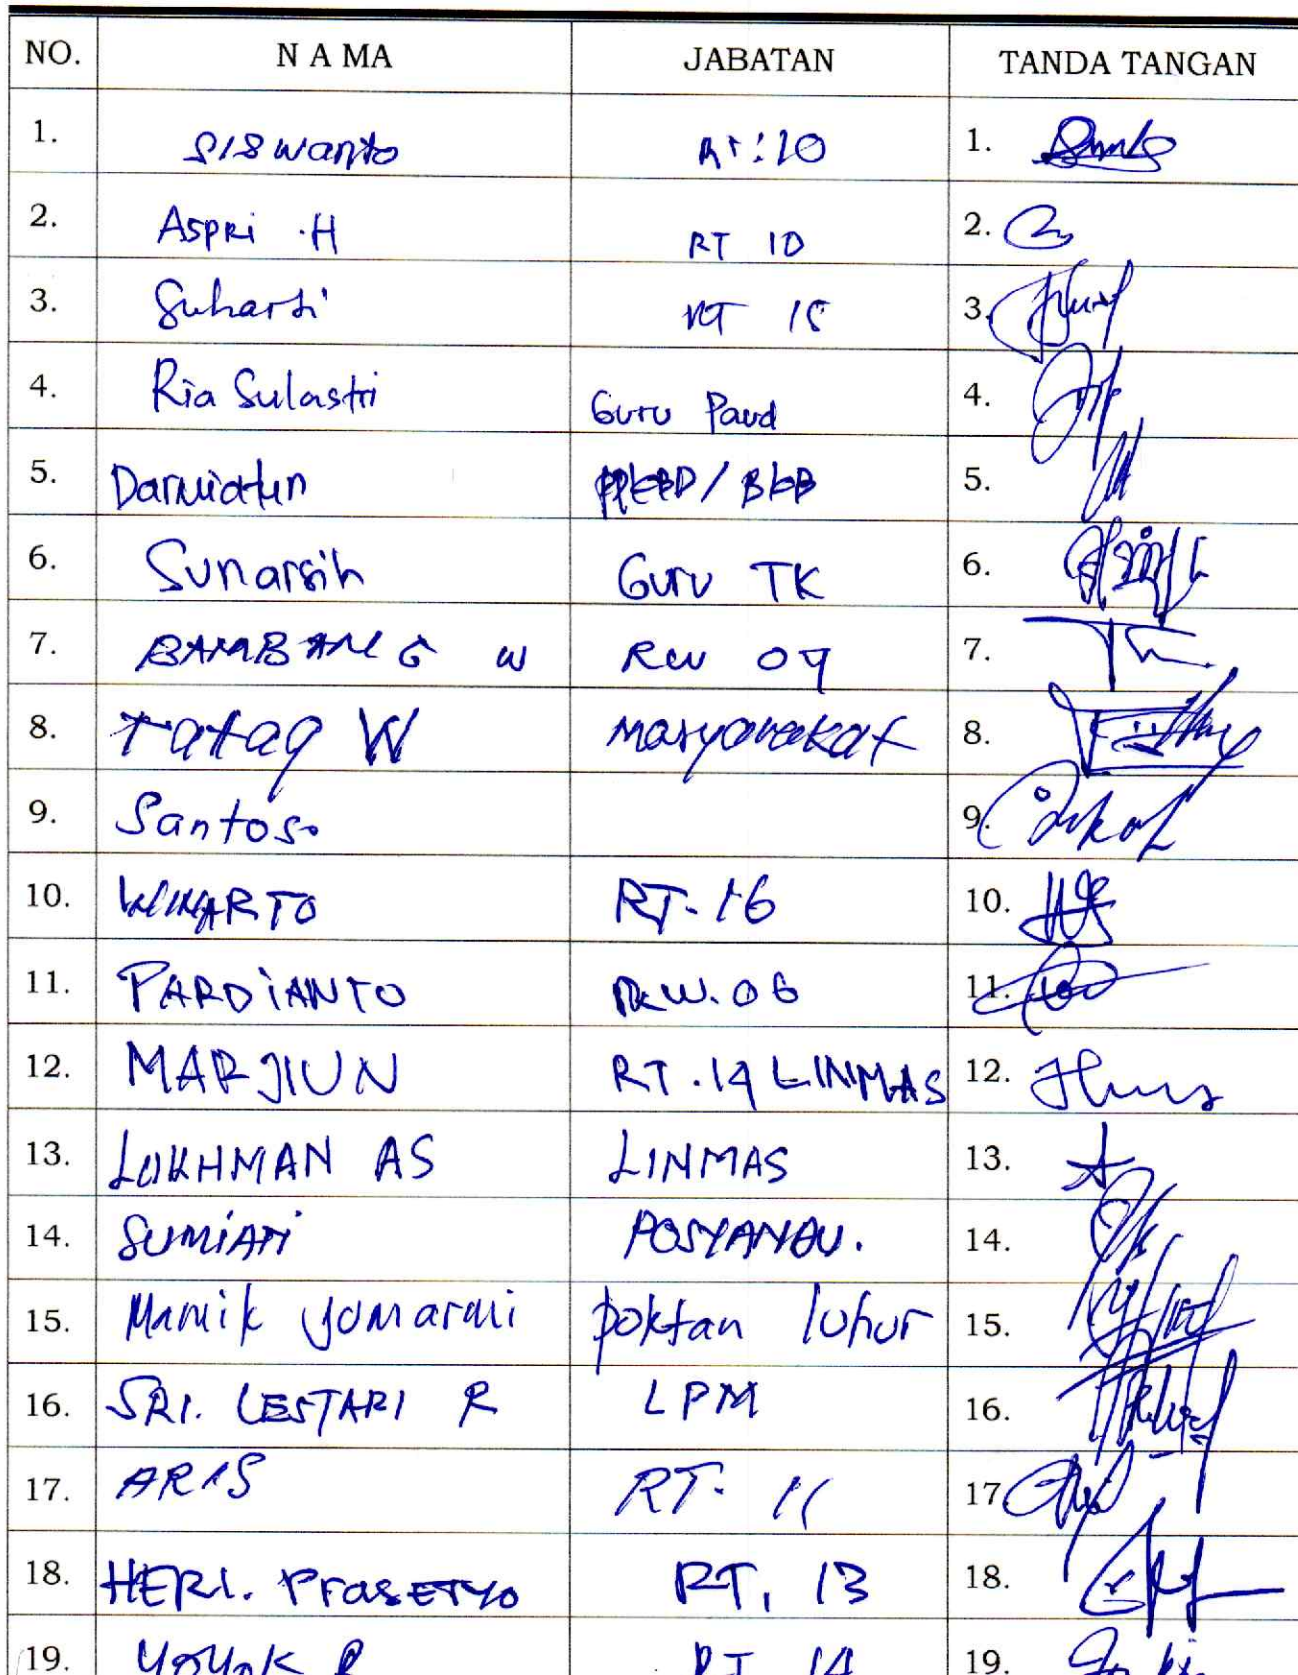 NO. N A M A JABATAN TANDA TANGAN
1. Siswanto RT:10 1.
2. Aspri .H RT 10 2.
3. Suharti RT 15 3.
4. Ria Sulastri Guru Paud 4.
5. Darmiatun / BKB 5.
6. Sunarsih Guru TK 6.
7. BAMBANG W RW 07 7.
8. Tataq W masyarakat 8.
9. Santoso 9.
10. WINARTO RT-16 10.
11. PARDIANTO RW.06 11.
12. MARJIUN RT.14 LINMAS 12.
13. LUKHMAN AS LINMAS 13.
14. SUMIATI POSYANDU. 14.
15. Mamik Jumarmi poktan luhur 15.
16. SRI. LESTARI R LPM 16.
17. ARIS RT. 11 17
18. HERI. PrasETYO RT, 13 18.
19. YOYOK R RT 14 19.